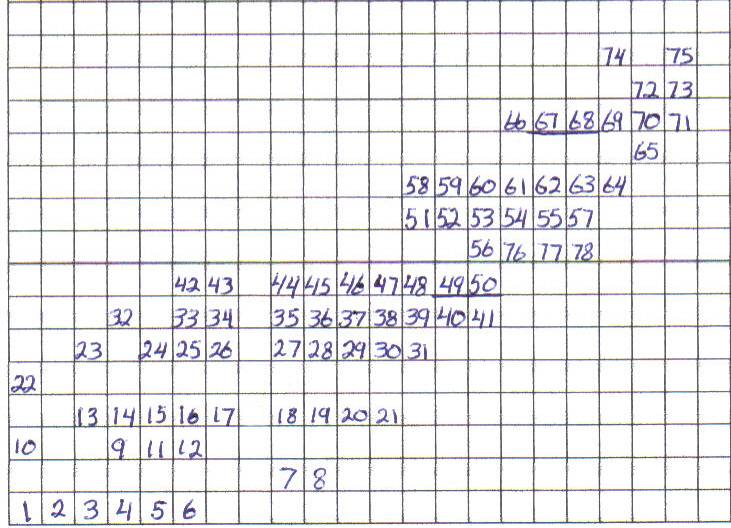 74 75
72 73
66 67 68 69 70 71
65
58 59 60 61 62 63 64
51 52 53 54 55 57
56 76 77 78
42 43 44 45 46 47 48 49 50
32 33 34 35 36 37 38 39 40 41
23 24 25 26 27 28 29 30 31
22
13 14 15 16 17 18 19 20 21
10 9 11 12
7 8
1 2 3 4 5 6